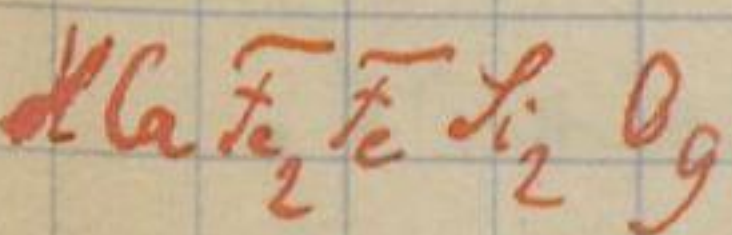 HCaFe₂FeSi₂O₉